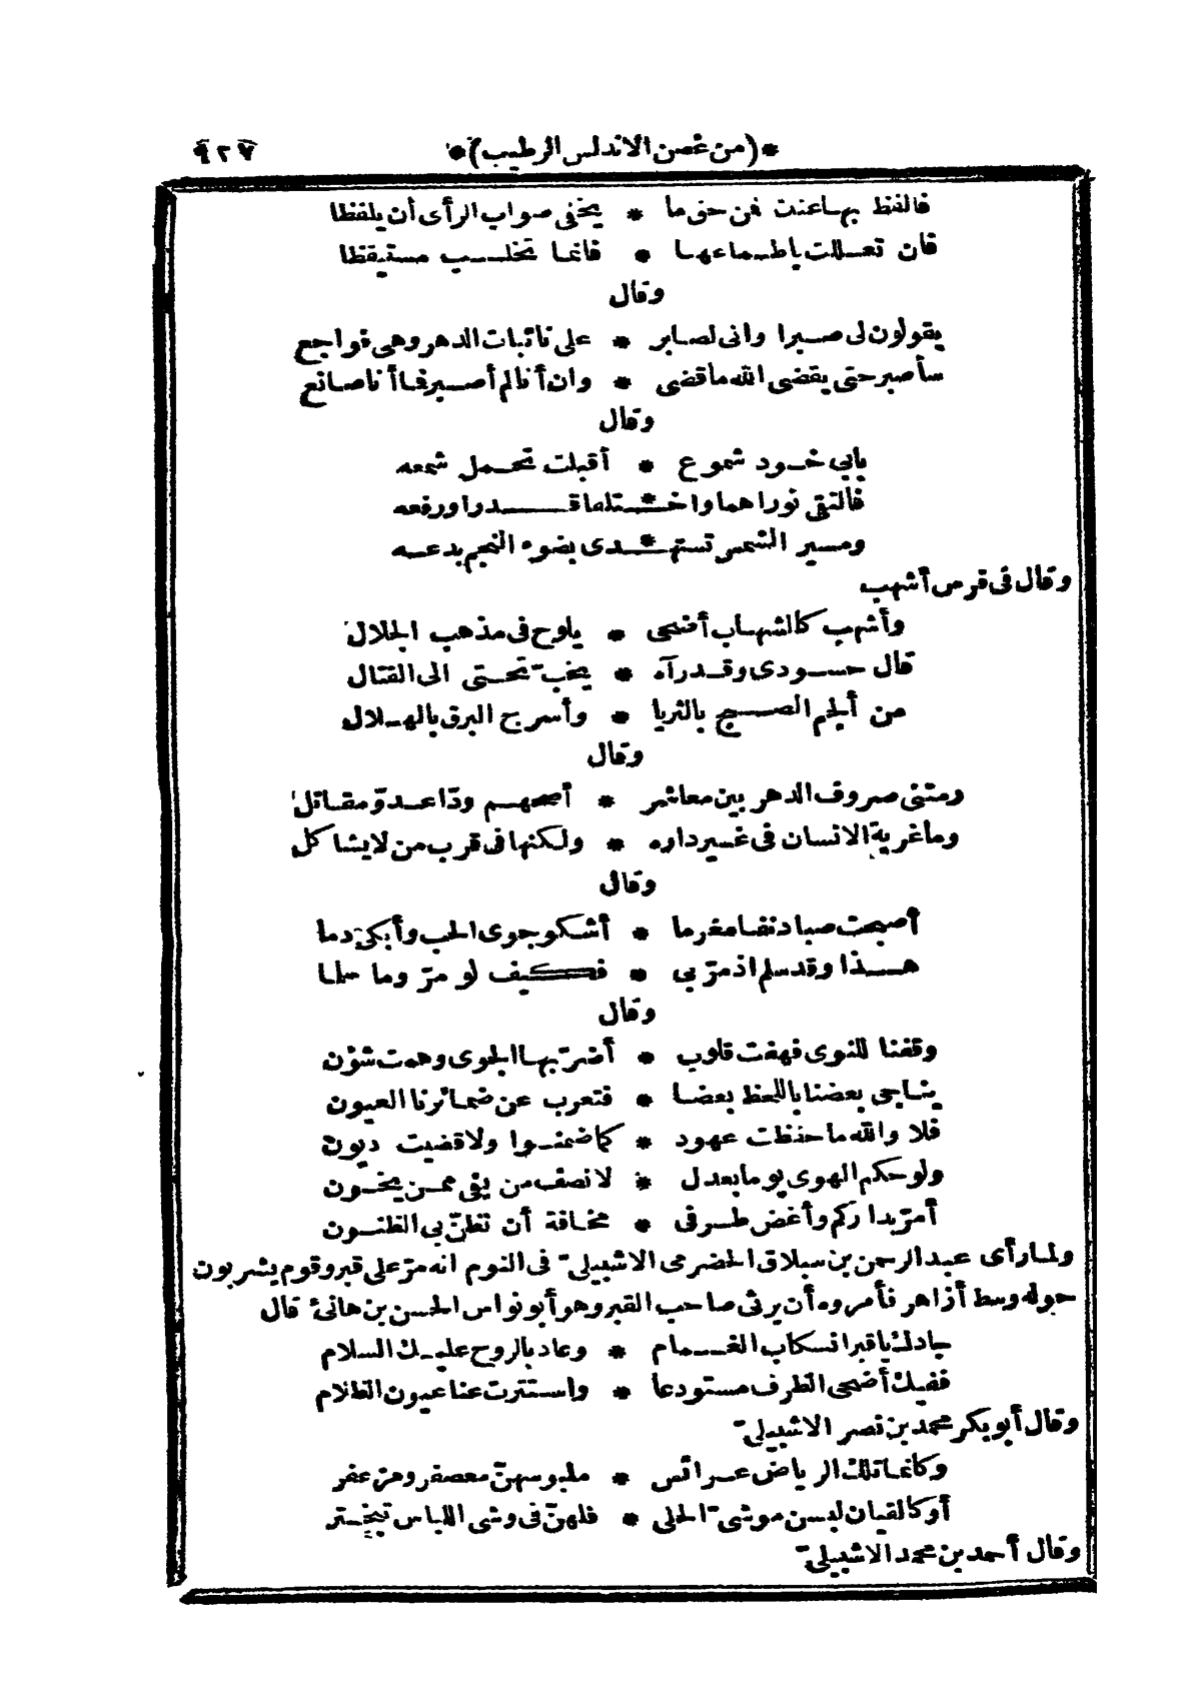 *(من غصن الاندلس الرطيب)* ٩٢٧
فالفظ بها عنت فمن حق ما * يخفى صواب الرأى أن يلفظا
فان تعللت باطماعها * فانما تخلب مستيقظا
وقال
يقولون لى صبرا وانى لصابر * على نائبات الدهر وهى فواجع
سأصبر حتى يقضى الله ما قضى * وان أنا لم أصبر فما أنا صانع
وقال
بابى خود شموع * أقبلت تحمل شمعه
فالتقى نوراهما واخـ * ـتلفا قدرا ورفعه
ومسير الشمس تستهـ * ـدى بضوء النجم بدعه
وقال فى فرس أشهب
وأشهب كالشهاب أضحى * يلوح فى مذهب الجلال
قال حسودى وقد رآه * يخبّ تحتى الى القتال
من ألجم الصبح بالثريا * وأسرج البرق بالهلال
وقال
رمتنى صروف الدهر بين معاشر * أصحهم ودّا عدوّ مقاتل
وما غربة الانسان فى غير داره * ولكنها فى قرب من لا يشاكل
وقال
أصبحت صبا دنفا مغرما * أشكو جوى الحب وأبكى دما
هذا وقد سلم اذ مرّ بى * فكيف لو مرّ وما سلما
وقال
وقفنا للنوى فهفت قلوب * أضرّ بها الجوى وهمت شؤن
يناجى بعضنا باللحظ بعضا * فتعرب عن ضمائرنا العيون
فلا والله ما حفظت عهود * كما ضمنوا ولا قضيت ديون
ولو حكم الهوى يوما بعدل * لانصف من يفى ممن يخون
أمرّ بداركم وأغض طرفى * مخافة أن تظنّ بى الظنون
ولما رأى عبد الرحمن بن سبلاق الحضرمى الاشبيلىّ فى النوم انه مرّ على قبر وقوم يشربون
حوله وسط أزاهر فأمروه أن يرثى صاحب القبر وهو أبو نواس الحسن بن هانئ قال
جادك يا قبرا نسكاب الغمام * وعاد بالروح عليك السلام
ففيك أضحى الظرف مستودعا * واستترت عنا عيون الظلام
وقال أبو بكر محمد بن نصر الاشبيلىّ
وكانما تلك الرياض عرائس * ملبوسهنّ معصفر ومزعفر
أو كالقيان لبسن موشىّ الحلى * فلهنّ فى وشى اللباس تبختر
وقال أحمد بن محمد الاشبيلىّ